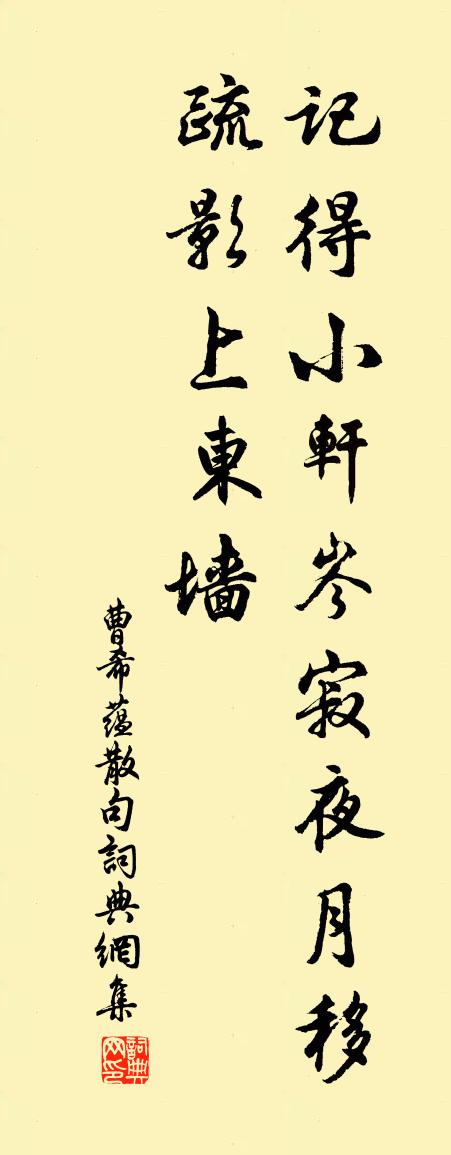 記得小軒岑寂夜月移
疏影上東墻
曹希蕴散句詞典網集
詞典网印